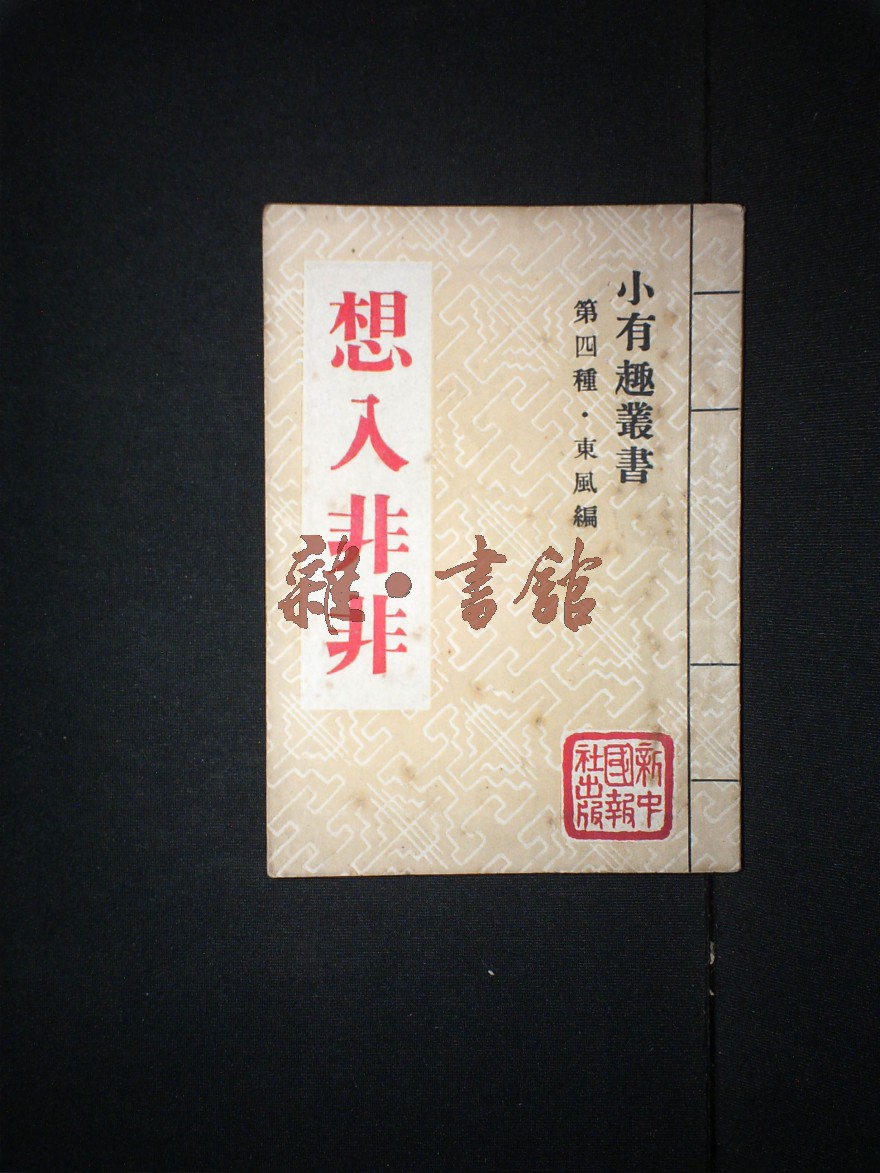 小有趣叢書
第四種・東風編
想入非非
新中國報社出版
雜・書館